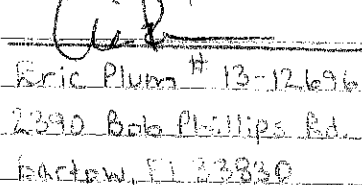 Eric Plum # 13-12696
2390 Bob Phillips Rd.
Bartow, Fl 33830